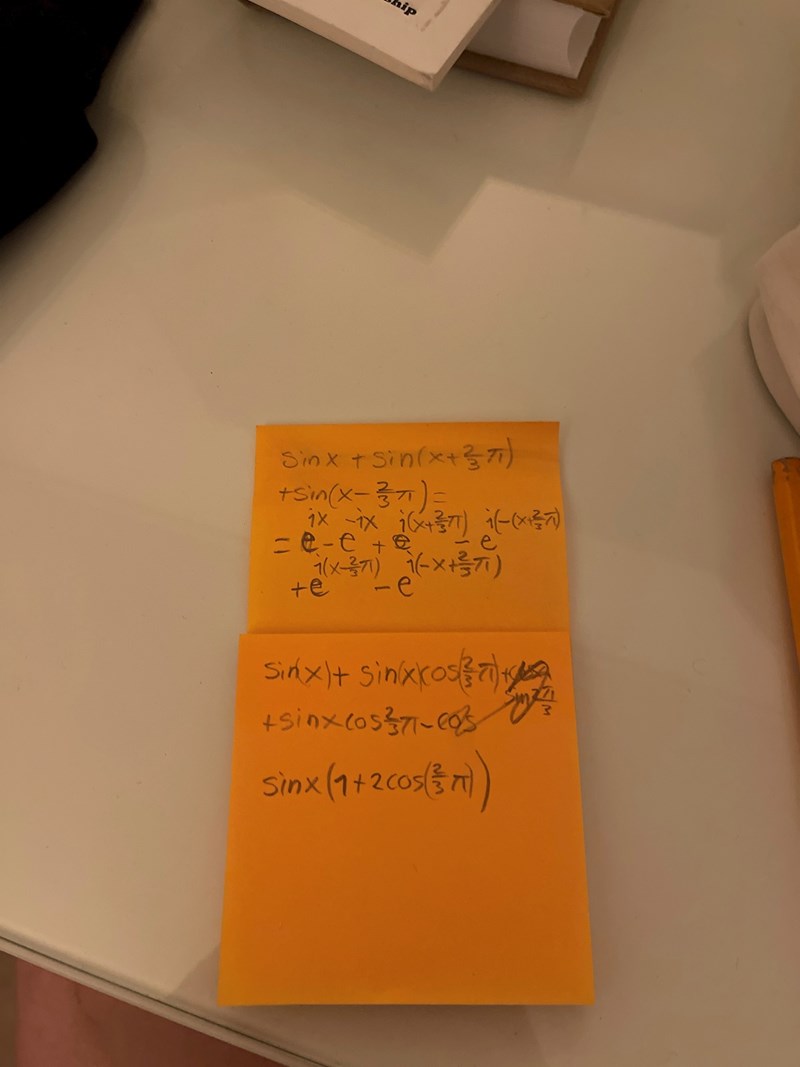 ship
sinx + sin(x+⅔π)
+sin(x-⅔π)=
= e^ix - e^-ix + e^i(x+⅔π) - e^i(-(x+⅔π)
+e^i(x-⅔π) - e^i(-x+⅔π)
sin(x)+ sin(x)cos(⅔π)+
+sinxcos⅔π-cos
sinx(1+2cos(⅔π))